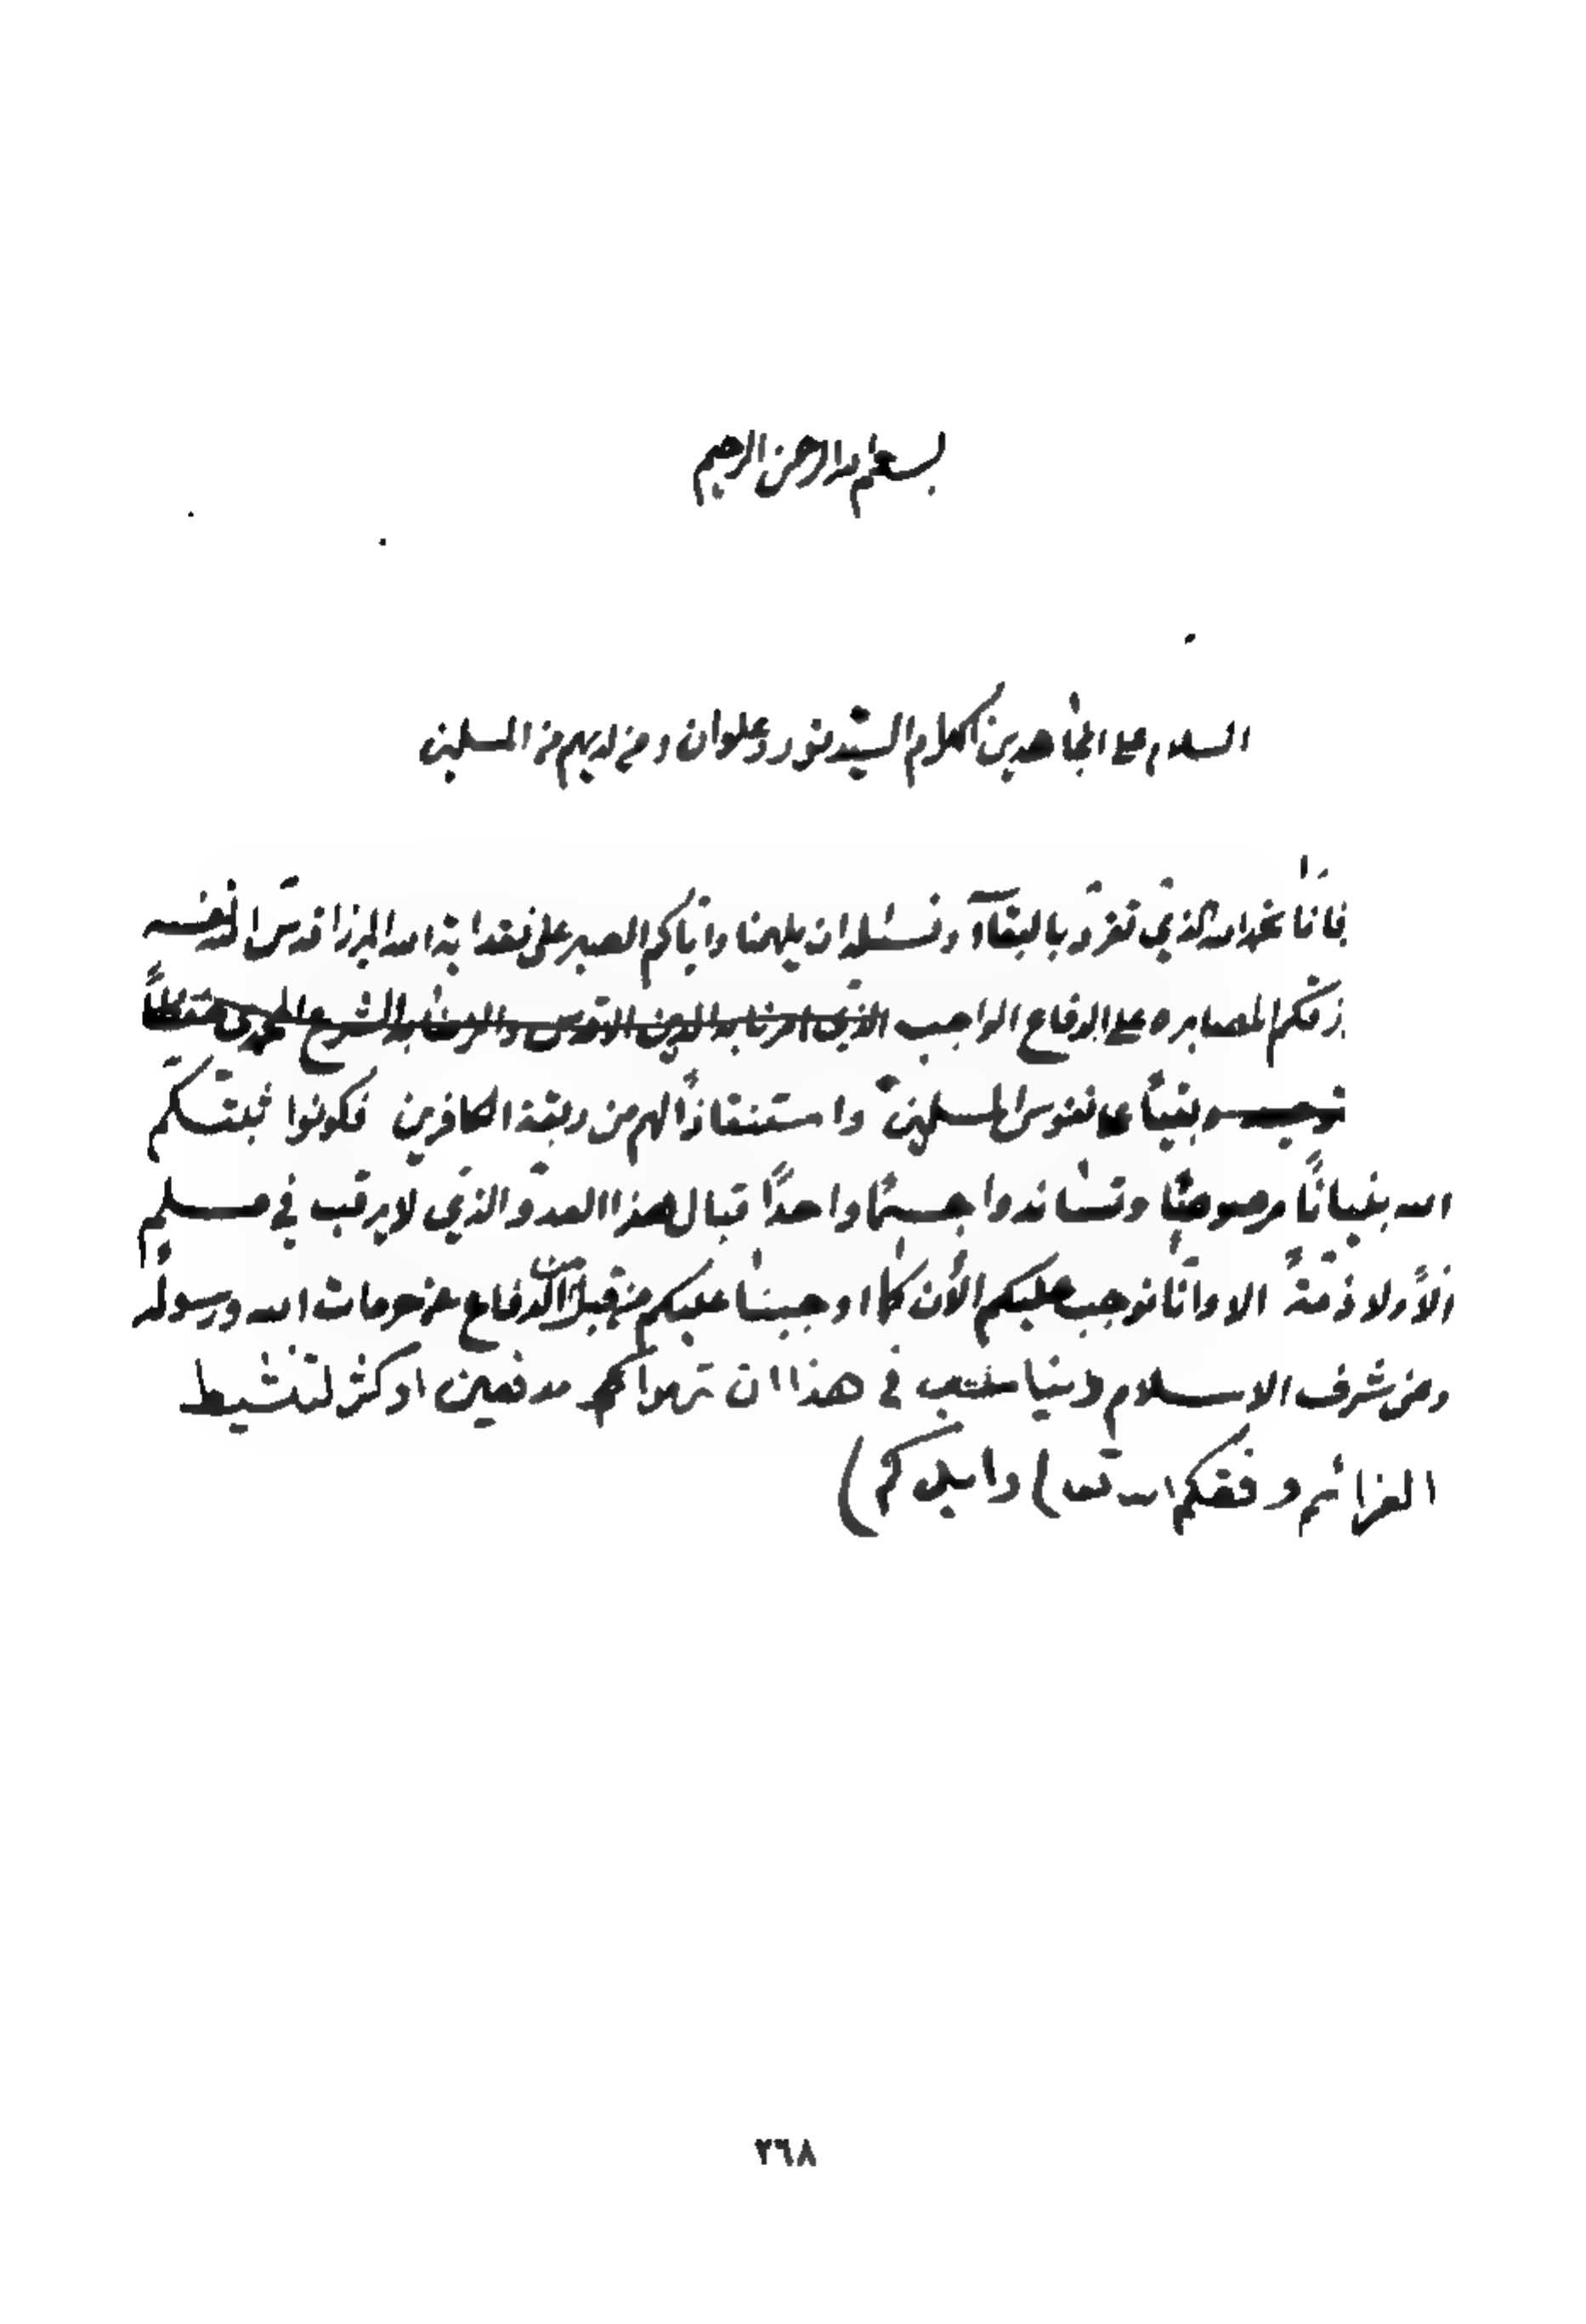 بسم الله الرحمن الرحيم
السلام على المجاهدين الكرام السيد نور وعلوان ومن لديهم من المسلمين
فاناّ نحمد الله الذي تفرّد بالبقآء ونسئله ان يلهمنا واياكم الصبر على فقد اية الله الميرزا قدس الله نفسه
زقكم المصابره على الدفاع الواجب الذي امرنا به الدين الاقدس
نفوس المسلمين واستنقاذاً لهم من ربقة الكافرين فكونوا ثبتكم
الله بنياناً مرصوصاً وتساندوا جسماً واحداً قبال هذا العدو الذي لا يرقب في مسلم
إلاّ ولا ذمّةً الا وانّا نوجب عليكم الأن كما اوجبنا عليكم من قبل الدفاع عن حرمات الله ورسوله
وعن شرف الاسلام في هذا ان تروا مدفعين او كثر لتنشيط
العزائم وفقكم الله تعالى وايدكم)
٣٦٨